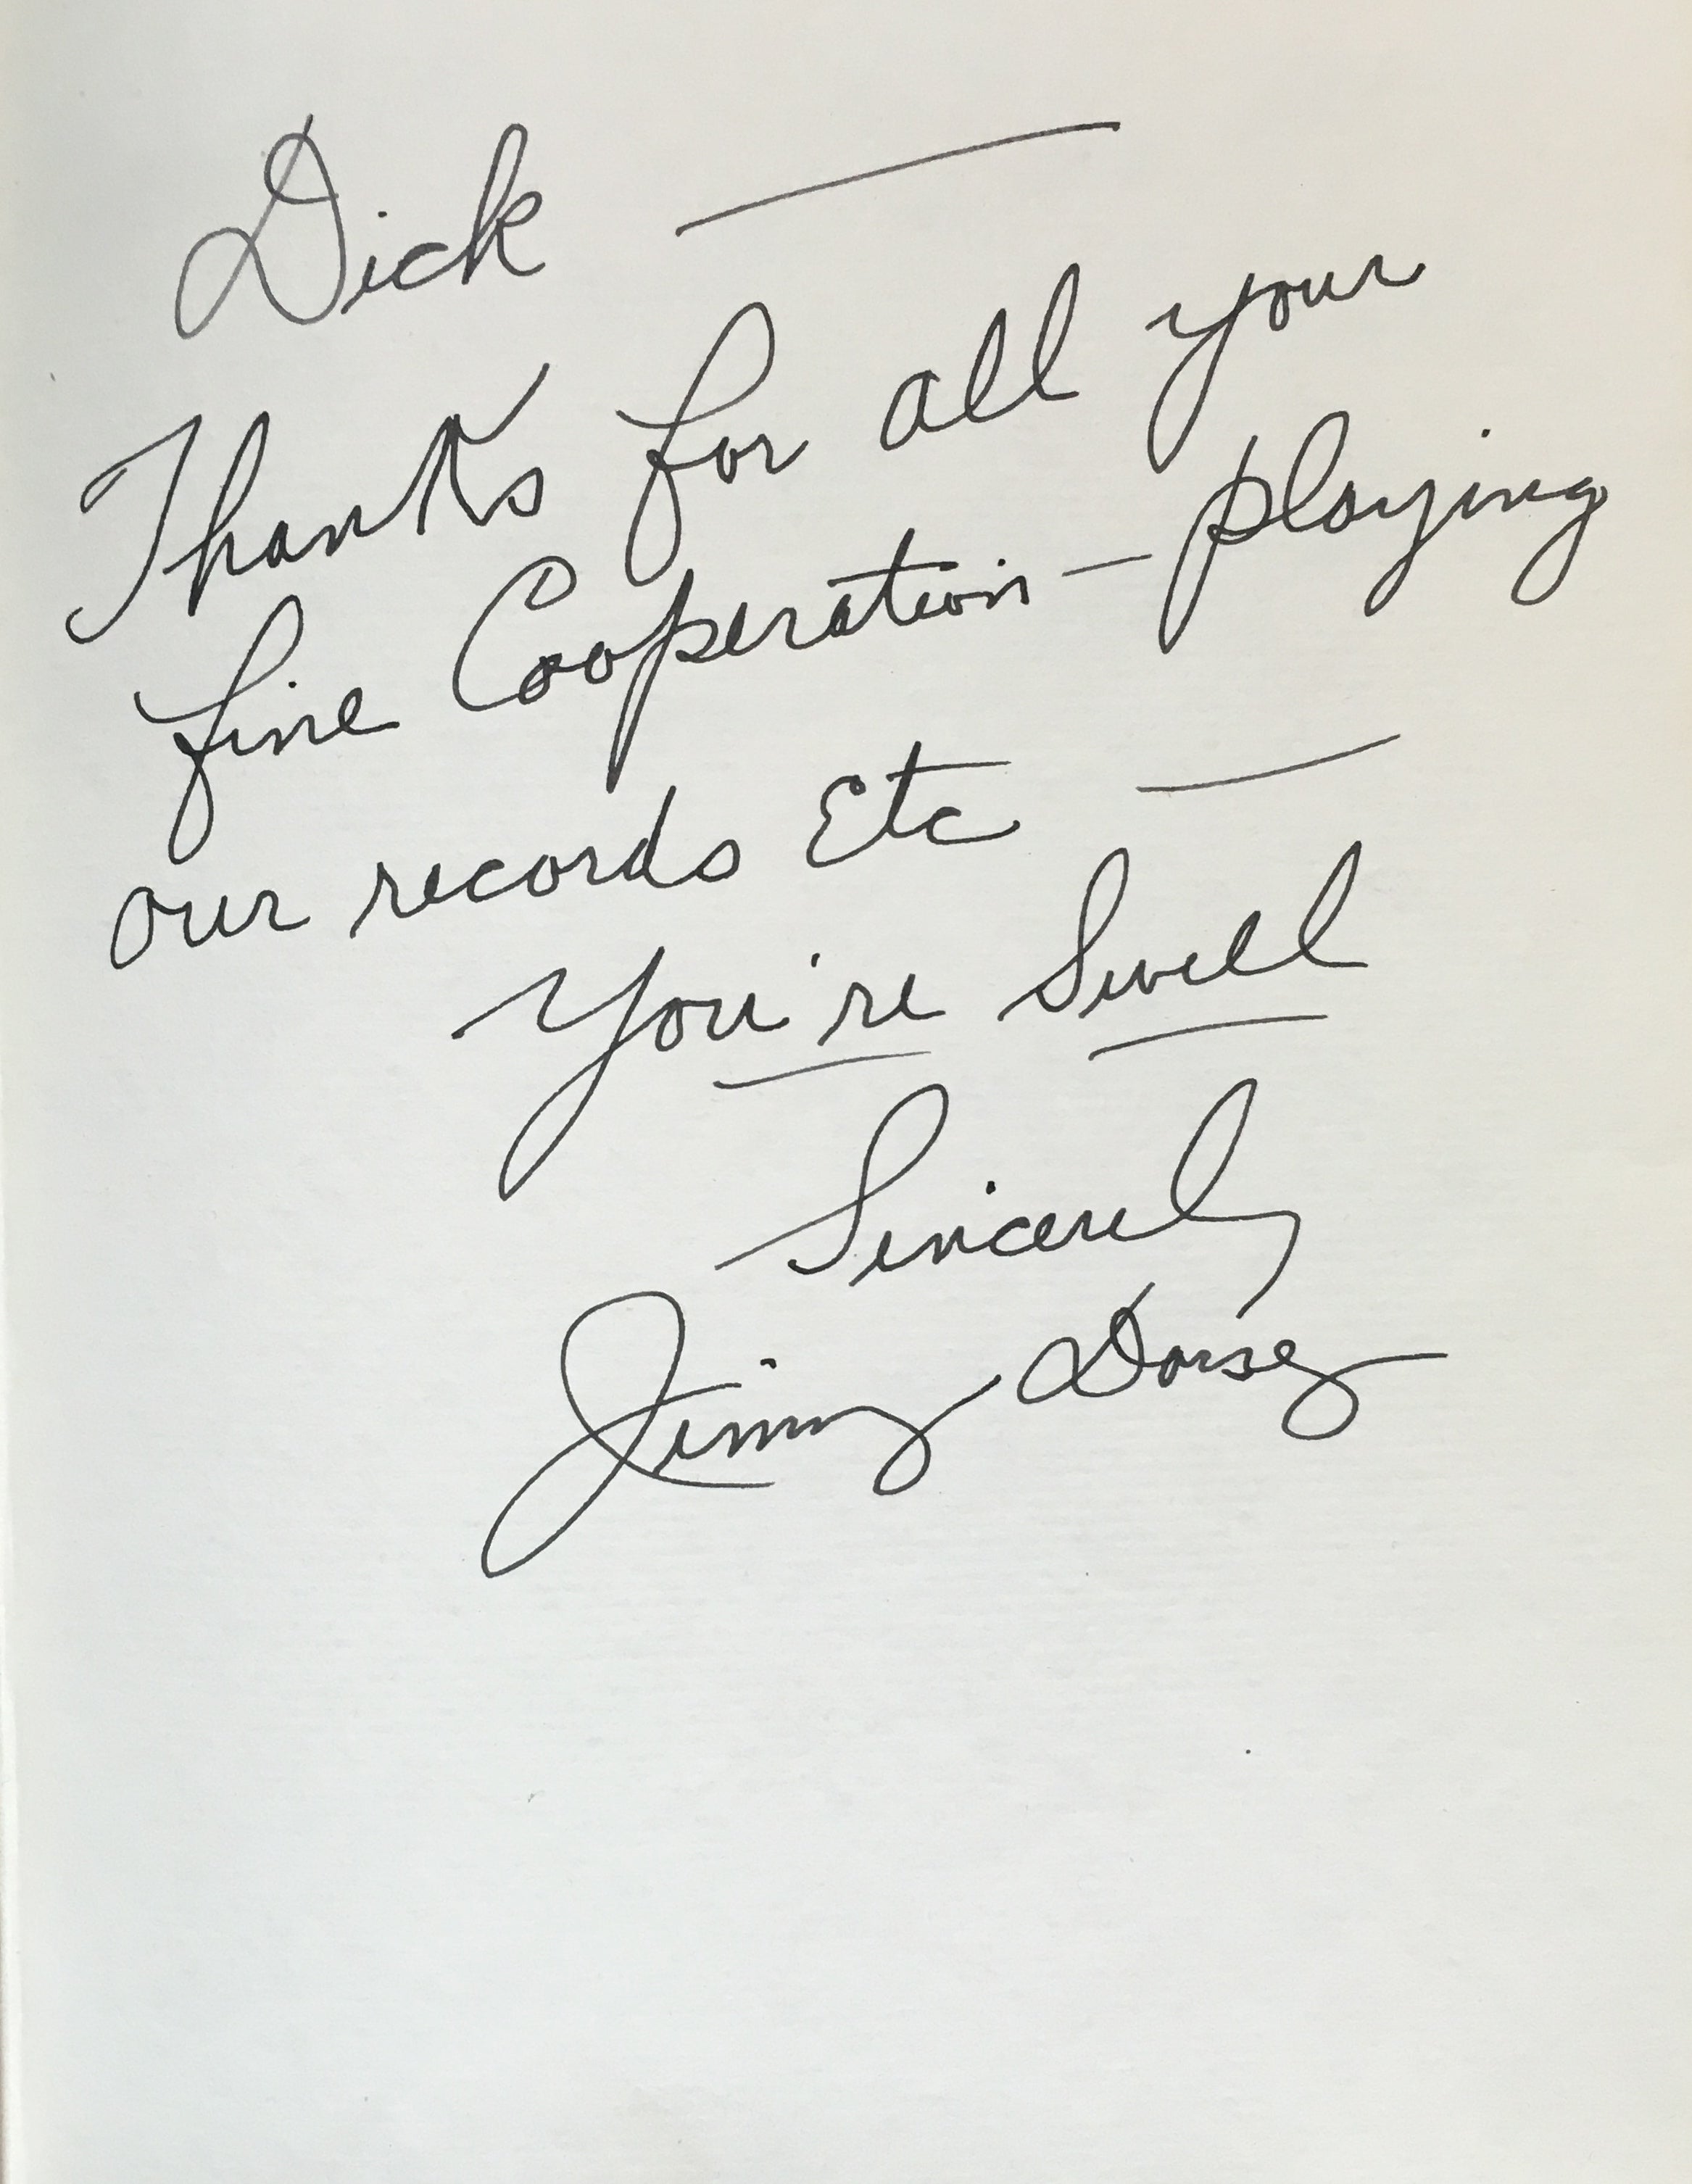 Dick —
Thanks for all your
fine Cooperation — playing
our records Etc —
You're Swell
Sincerely
Jimmy Dorsey